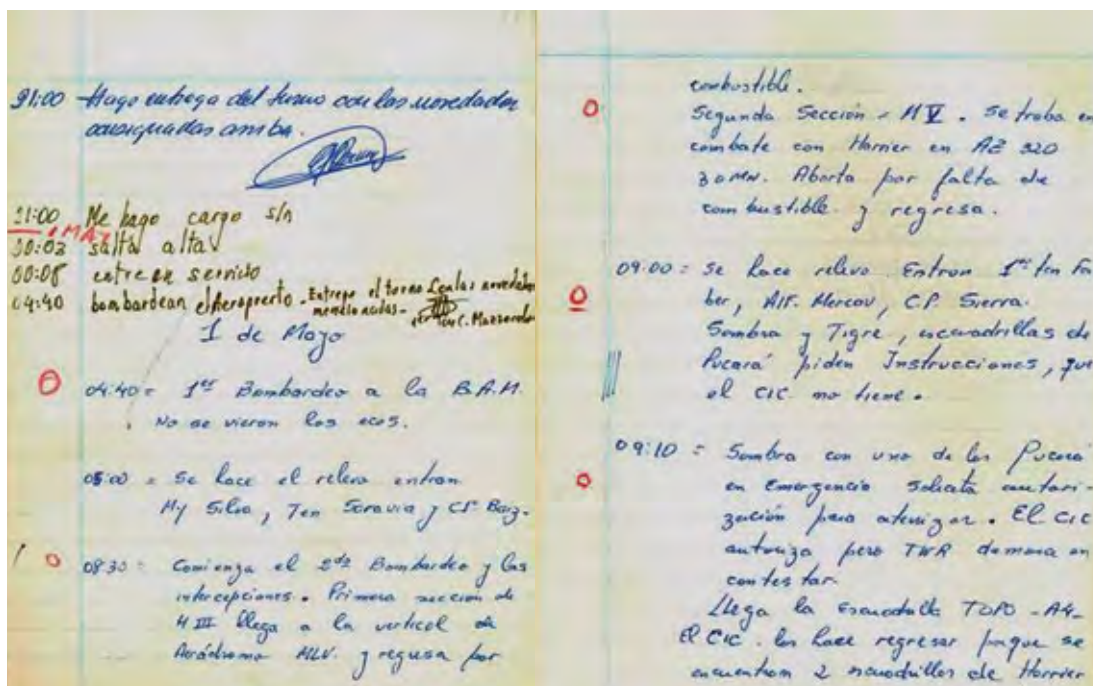 21:00 Hago entrega del turno con las novedades
consignadas arriba.
21:00 Me hago cargo s/n
1 MAY
00:03 salta alta
00:08 entre en servicio
04:40 bombardean el Aeropuerto - Entrego el turno con las novedades
mencionadas -
1 de Mayo
04:40 = 1er Bombardeo a la B.A.M.
No se vieron los ecos.
05:00 = Se hace el relevo entran
My Silva, Ten Saravia y
08:30 = Comienza el 2do Bombardeo y las
intercepciones. Primera sección de
M III llega a la vertical de
Aeródromo MLV. y regresa por
combustible.
Segunda Sección - M V. se traba en
combate con Harrier en AZ 320
30 MN. Aborta por falta de
combustible y regresa.
09:00 = Se hace relevo. Entran 1er Ten Fa
ber, Alf. Mercau, C.P. Sierra.
Sombra y Tigre, escuadrillas de
Pucará piden Instrucciones, que
el CIC no tiene.
09:10 = Sombra con uno de los Pucará
en Emergencia solicita autori-
zación para aterrizar. El CIC
autoriza pero TWR demora en
contestar.
Llega la Escuadrilla TOPO - A4 -
El CIC. los hace regresar porque se
encuentran 2 escuadrillas de Harrier